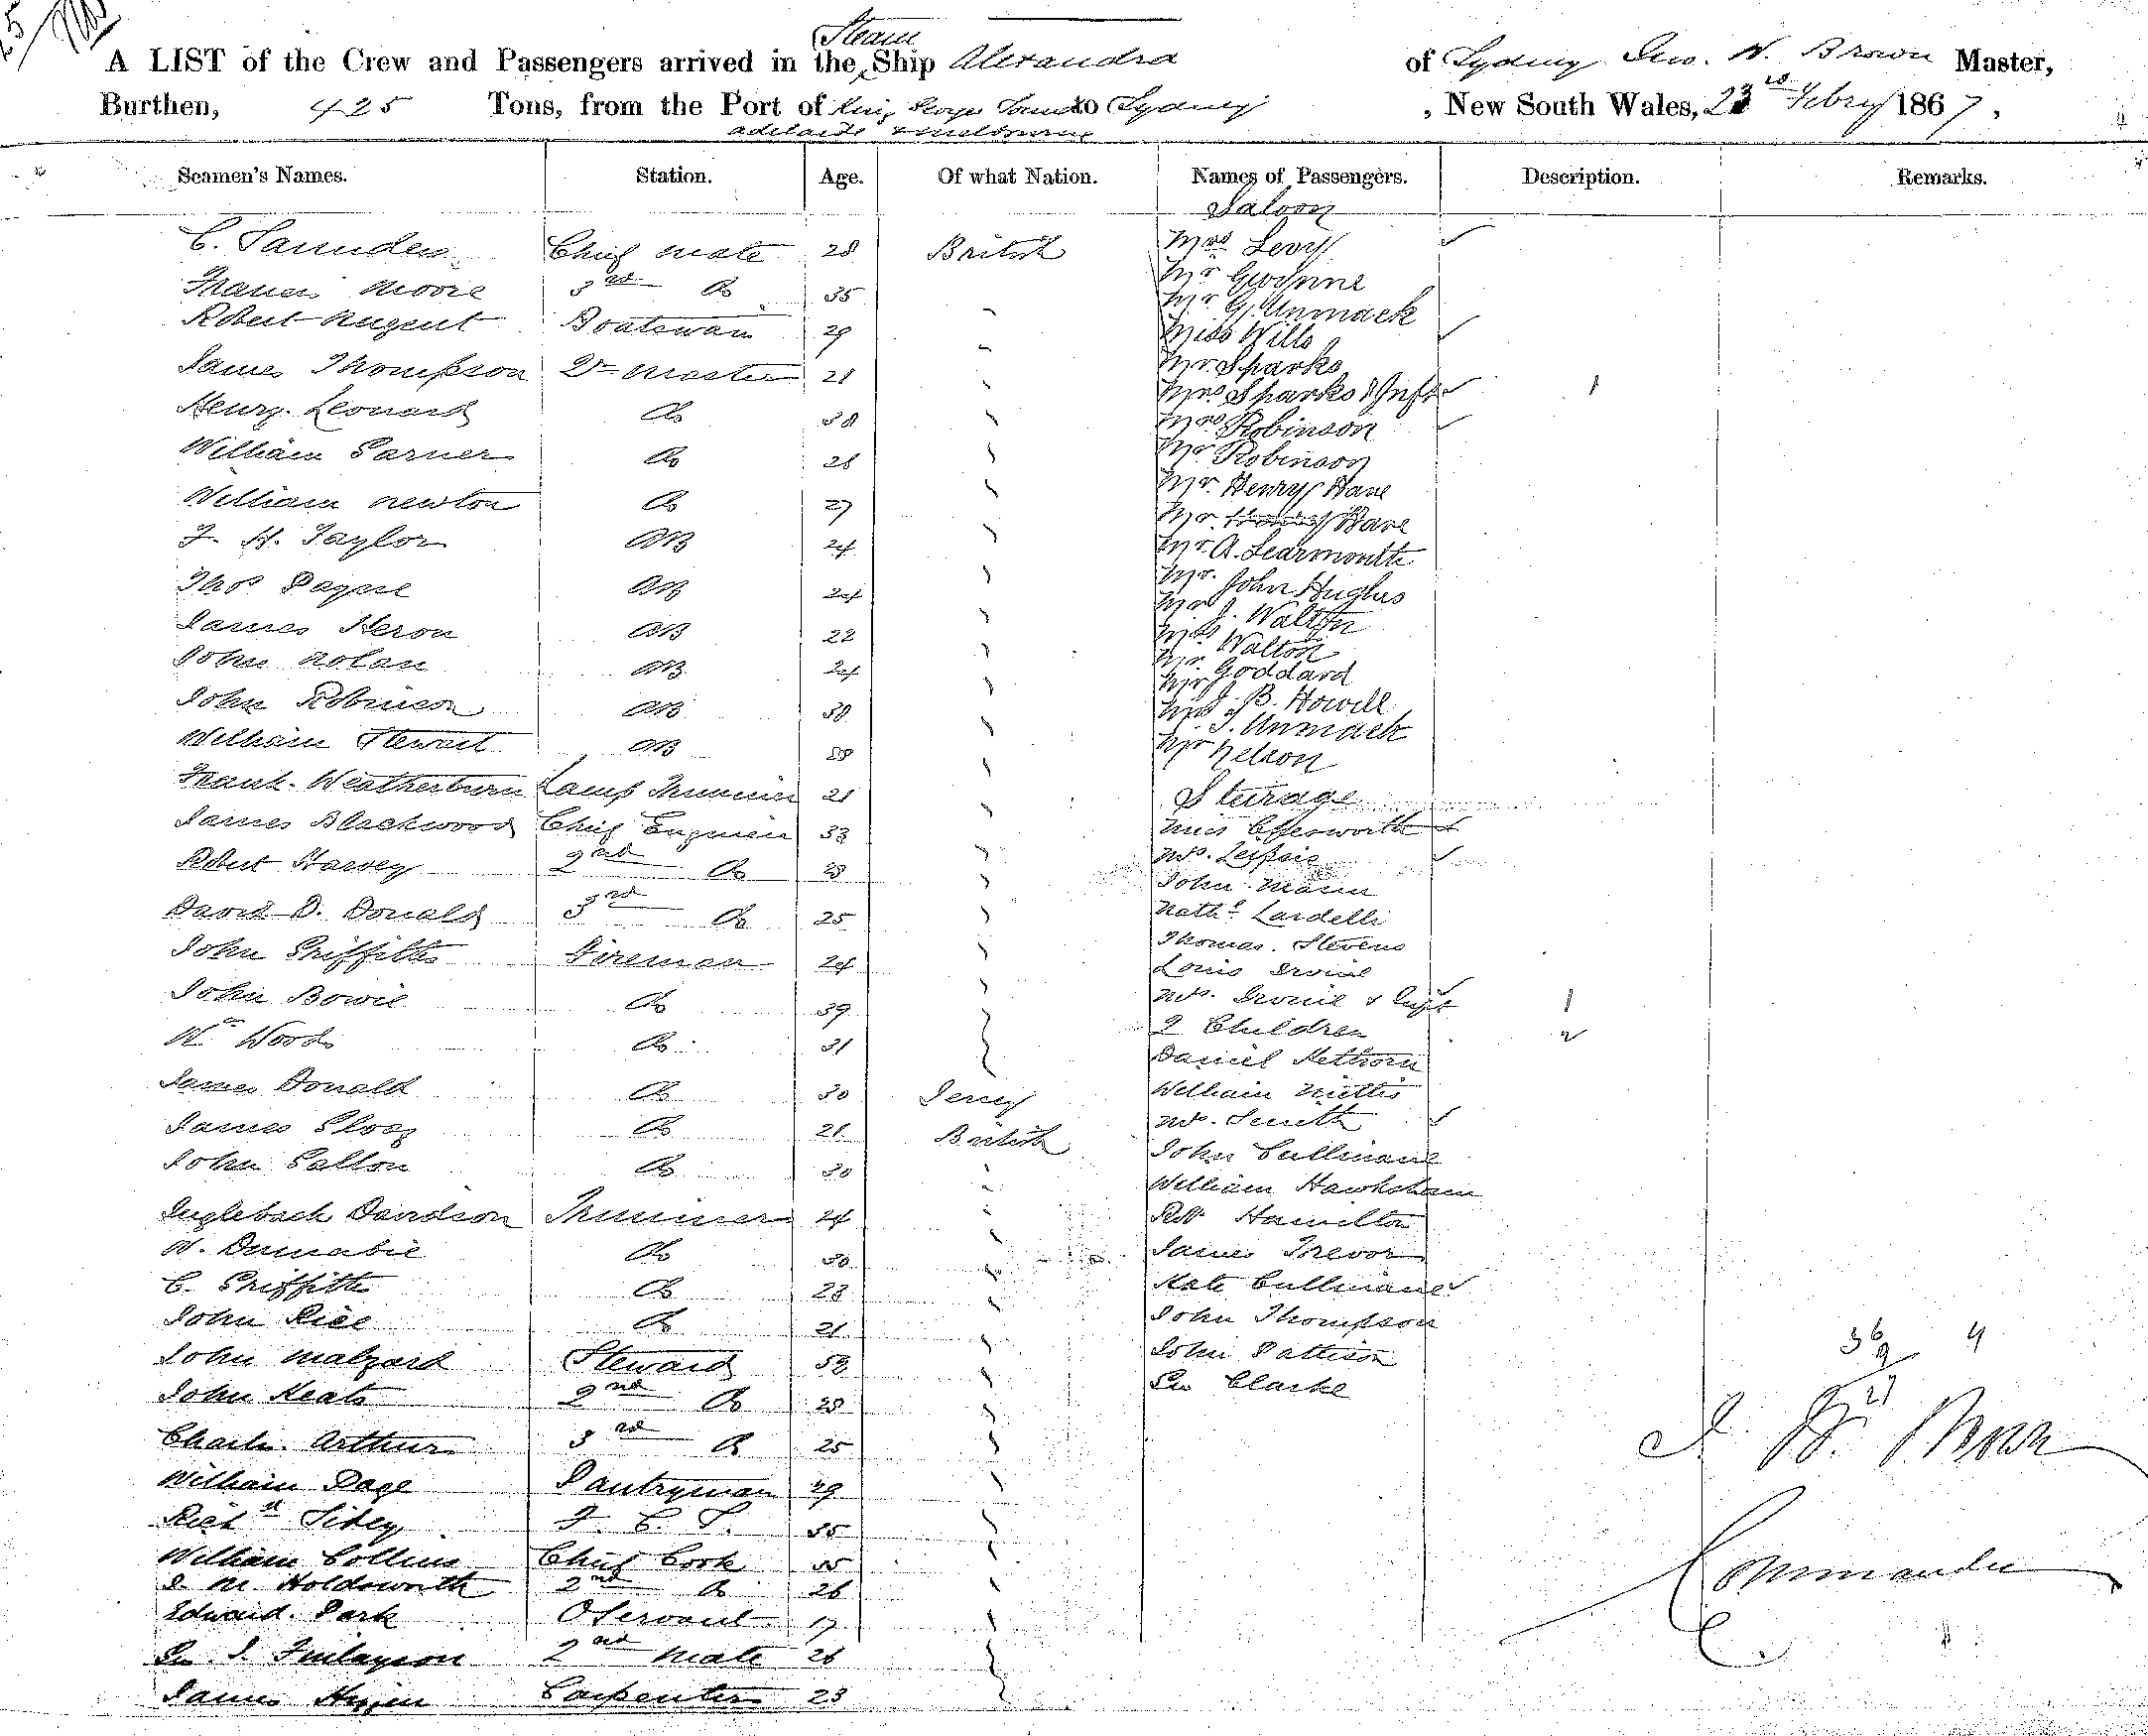 Steam
A LIST of the Crew and Passengers arrived in the Ship Alexandra of Sydney Geo. N. Brown Master,
Burthen, 425 Tons, from the Port of King George Sound to Sydney, New South Wales, 23rd Febry 1867,
Adelaide & Melbourne
Seamen's Names. Station. Age. Of what Nation. Names of Passengers. Description. Remarks.
Saloon
C. Saunders Chief Mate 28 British
Francis Moore 3rd Do 35
Robert Nugent Boatswain 29
James Thompson Qr Master 21
Henry Leonard Do 38
William Garner Do 28
William Newton Do 27
F. H. Taylor AB 24
Thos Payne AB 24
James Heron AB 22
John Nolan AB 24
John Robinson AB 30
William Stewart AB
Frank Weatherburn Lamp Trimmer 21
James Blackwood Chief Engineer 33
Robert Harvey 2nd Do 28
David D. Donald 3rd Do 25
John Griffiths Fireman 24
John Bowie Do 39
Wm Woods Do 31
James Donald Do 30 Jersey
James Do 21 British
John Do 30
Davidson Trimmer 24
W. Do 30
C. Griffiths Do 23
John Rice Do 21
John Malzard Steward 52
John Keats 2nd Do 28
Charles Arthur 3rd Do 25
William Page Pantryman 29
Richd Sidey F. C. S. 35
William Collins Chief Cook 35
J. M. Holdsworth 2nd Do 26
Edward Park O Servant 17
G. J. Finlayson 2nd Mate 26
James Carpenter 23
Mrs Levy
Mr Gwynne
Mr G. Unmack
Miss Wills
Mr. Sparks
Mrs Sparks & Inft 1
Mrs Robinson
Mr Robinson
Mr. Henry Hare
Mr Hare
Mr. A. Learmonth
Mr. John Hughes
Mr J. Walton
Mrs Walton
Mr. Goddard
Mr J. B. Howell
Mr T. Unmack
Mr Nelson
Steirage
Miss Esserworth
Mrs.
John Mann
Nathl Lardelli
Thomas Stevens
Louis Irvine
Mrs. Irvine & Inft 1
2 Children 2
Daniel
William
Mrs. Smith
John Cullinane
William Hawksham
Robt Hamilton
James Trevor
Kate Cullinane
John Thompson
John Pattison
Geo Clarke
36 4
9
27
Commander